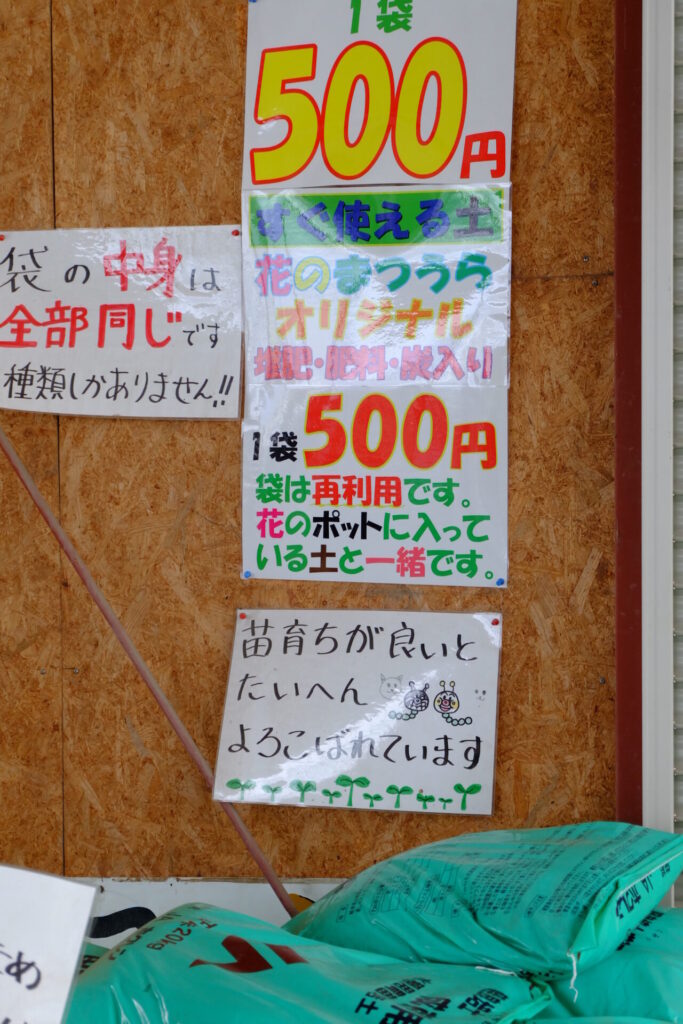 1袋
500円
すぐ使える土
花のまつうら
オリジナル
堆肥・肥料・炭入り
1袋500円
袋は再利用です。
花のポットに入って
いる土と一緒です。
袋の中身は
全部同じです
種類しかありません!!
苗育ちが良いと
たいへん
よろこばれています
正味20kg